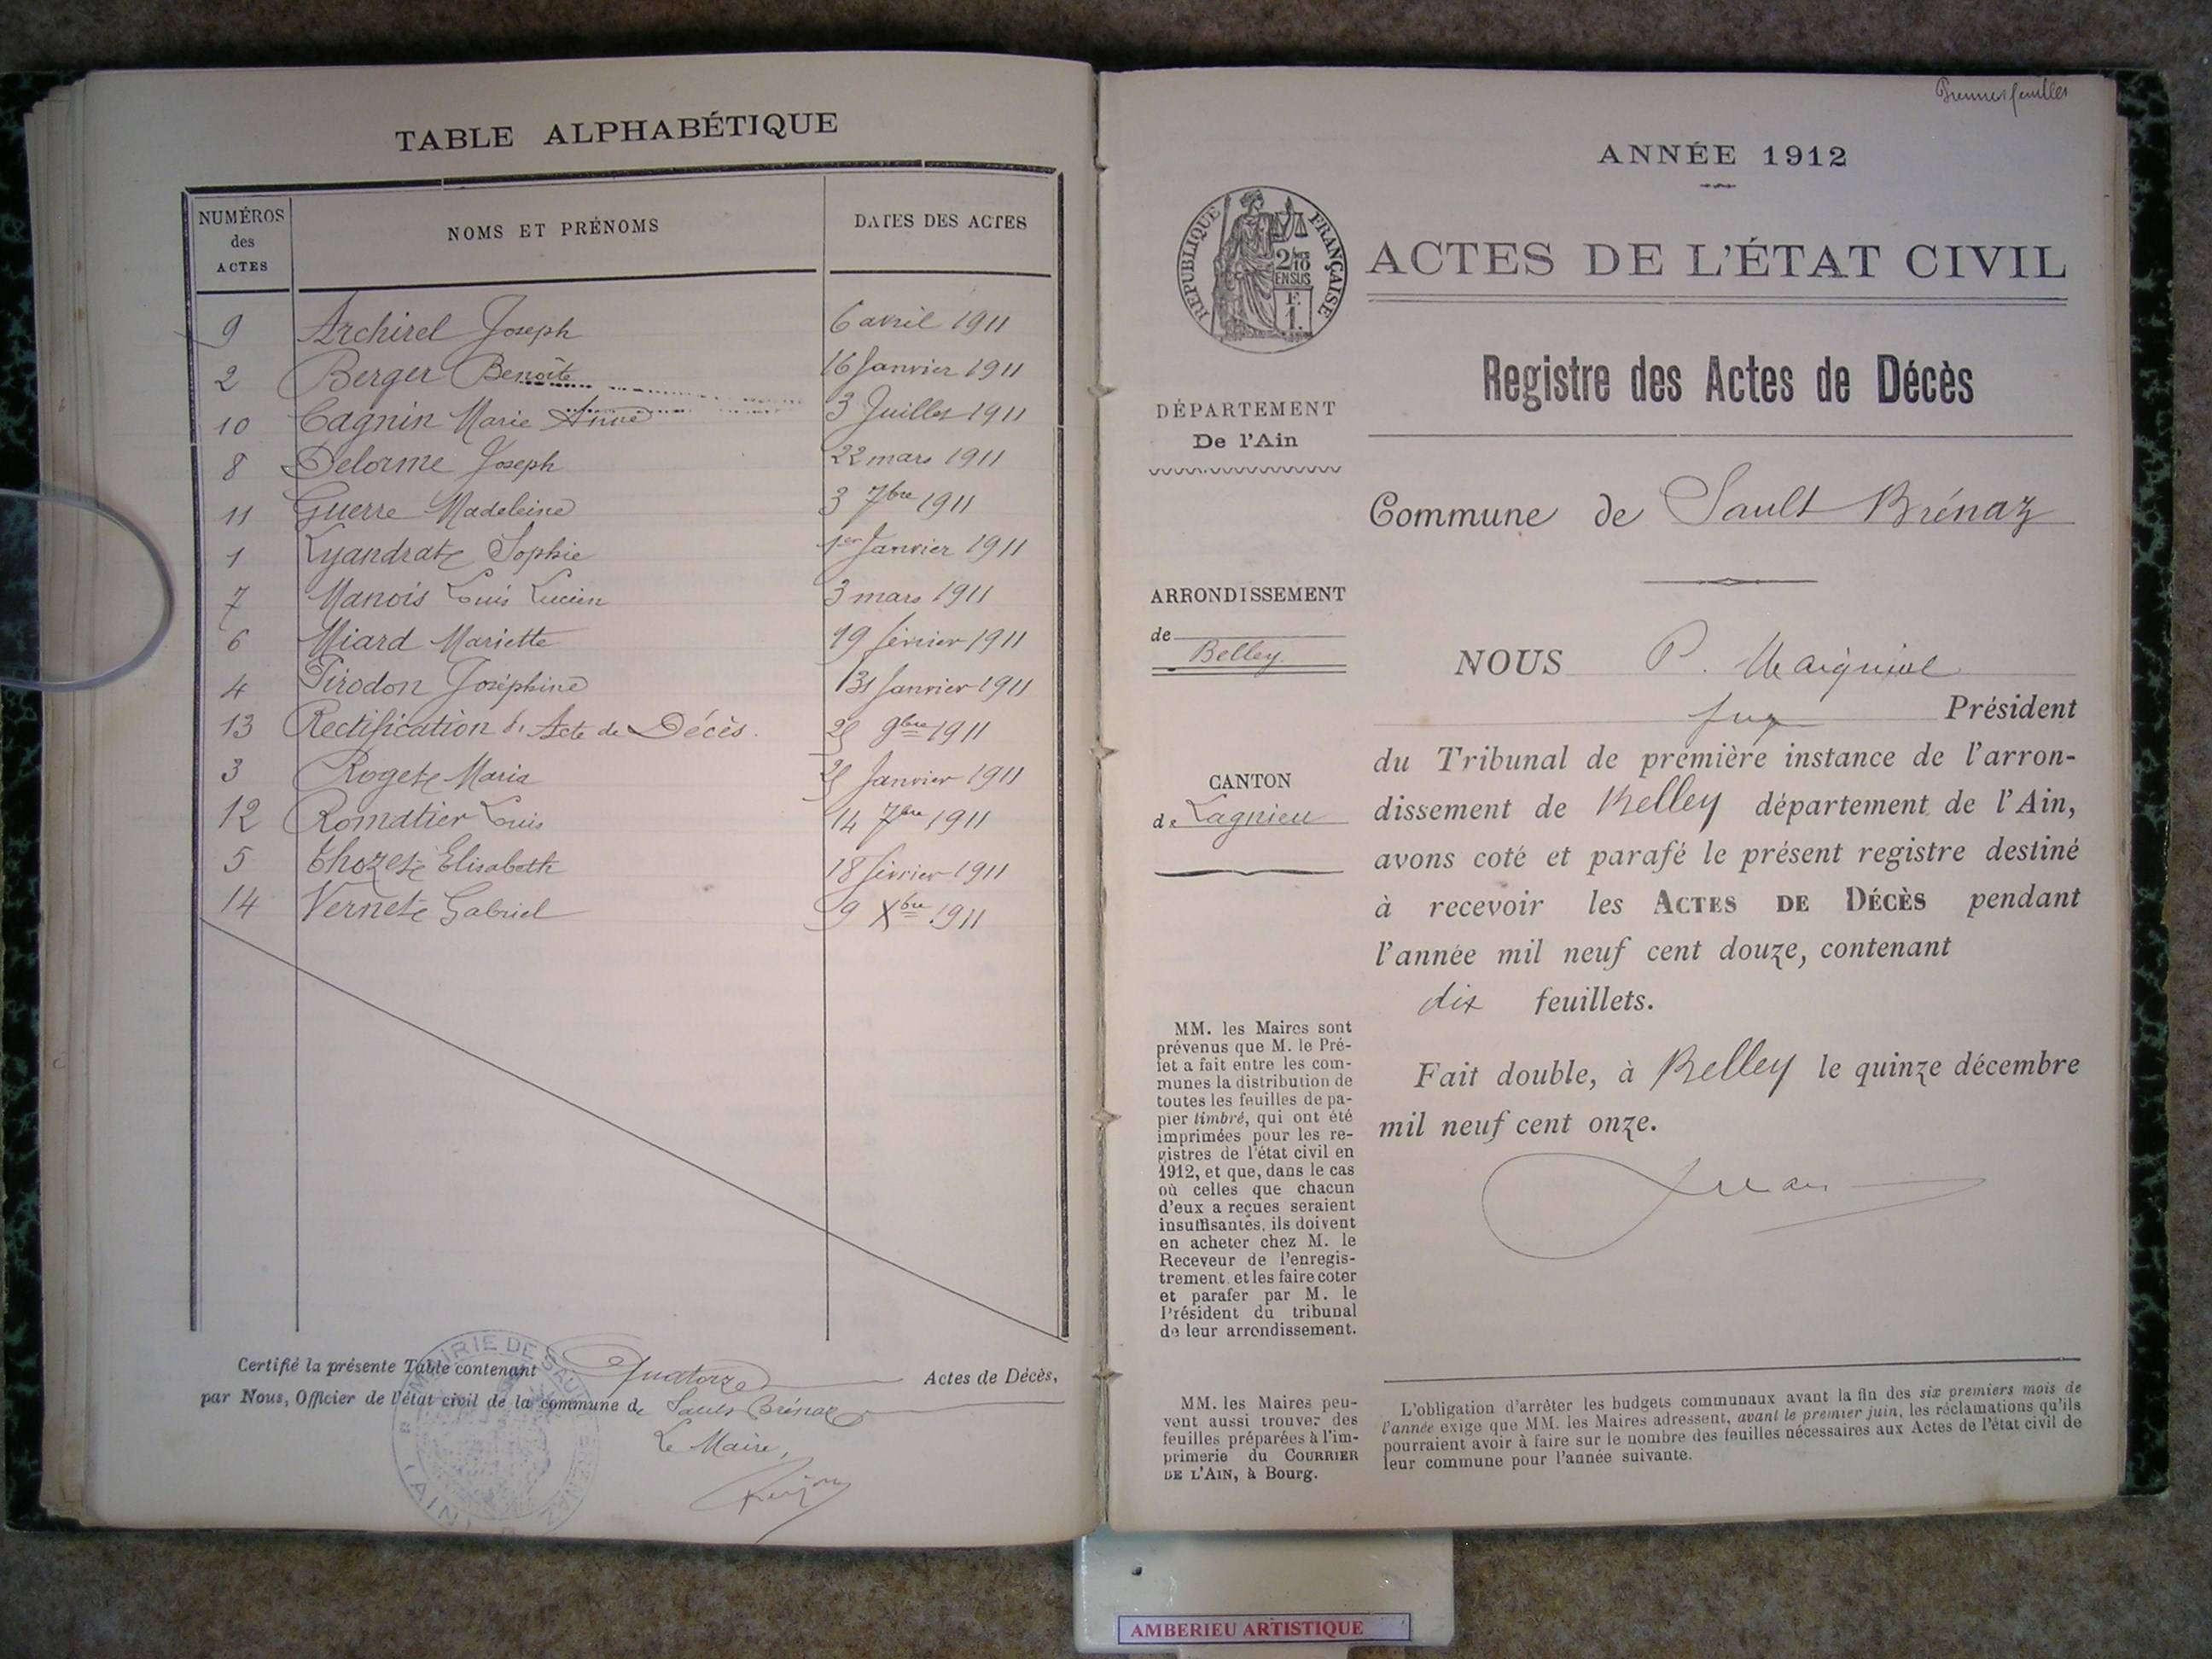 TABLE ALPHABÉTIQUE
NUMÉROS des ACTES
NOMS ET PRÉNOMS
DATES DES ACTES
9 Archirel Joseph 6 avril 1911
2 Berger Benoîte 16 Janvier 1911
10 Cagnin Marie Anne 3 Juillet 1911
8 Delorme Joseph 22 mars 1911
11 Guerre Madeleine 3 7bre 1911
1 Lyandrat Sophie 1er Janvier 1911
7 Manois Louis Lucien 3 mars 1911
6 Miard Mariette 19 février 1911
4 Pirodon Joséphine 31 Janvier 1911
13 Rectification d'Acte de Décès. 9bre 1911
3 Roget Maria Janvier 1911
12 Romatier Louis 14 7bre 1911
5 Thozet Elisabeth 18 février 1911
14 Vernet Gabriel 9 Xbre 1911
Certifié la présente Table contenant Quatorze Actes de Décès,
par Nous, Officier de l'état civil de la commune de Sault Brénaz
Le Maire,
MAIRIE DE SAULT BRENAZ
(AIN)
Premier feuillet
ANNÉE 1912
RÉPUBLIQUE FRANÇAISE
2/10
EN SUS
F.
1.
ACTES DE L'ÉTAT CIVIL
Registre des Actes de Décès
DÉPARTEMENT
De l'Ain
Commune de Sault Brénaz
ARRONDISSEMENT
de Belley
NOUS P.
Président
du Tribunal de première instance de l'arron-
CANTON
de Lagnieu
dissement de Belley département de l'Ain,
avons coté et parafé le présent registre destiné
à recevoir les ACTES DE DÉCÈS pendant
l'année mil neuf cent douze, contenant
dix feuillets.
Fait double, à Belley le quinze décembre
mil neuf cent onze.
MM. les Maires sont
prévenus que M. le Pré-
fet a fait entre les com-
munes la distribution de
toutes les feuilles de pa-
pier timbré, qui ont été
imprimées pour les re-
gistres de l'état civil en
1912, et que, dans le cas
où celles que chacun
d'eux a reçues seraient
insuffisantes, ils doivent
en acheter chez M. le
Receveur de l'enregis-
trement et les faire coter
et parafer par M. le
Président du tribunal
de leur arrondissement.
MM. les Maires peu-
vent aussi trouver des
feuilles préparées à l'im-
primerie du COURRIER
DE L'AIN, à Bourg.
L'obligation d'arrêter les budgets communaux avant la fin des six premiers mois de
l'année exige que MM. les Maires adressent, avant le premier juin, les réclamations qu'ils
pourraient avoir à faire sur le nombre des feuilles nécessaires aux Actes de l'état civil de
leur commune pour l'année suivante.
AMBERIEU ARTISTIQUE